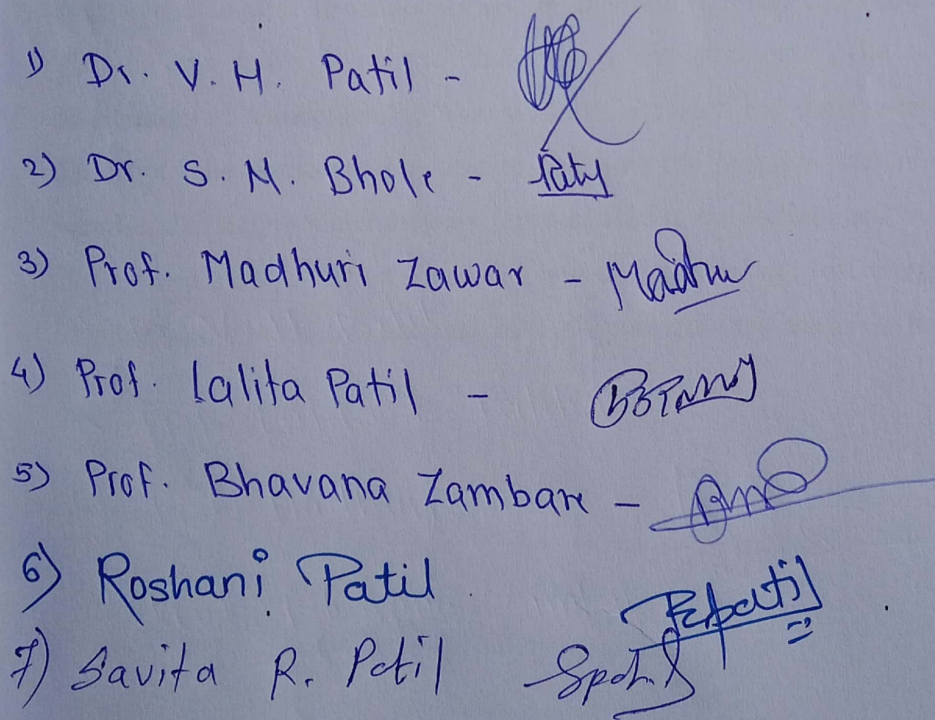 1) Dr. V. H. Patil -
2) Dr. S. M. Bhole -
3) Prof. Madhuri Zawar - Madhu
4) Prof. Lalita Patil -
5) Prof. Bhavana Zambare -
6) Roshani Patil
7) Savita R. Patil